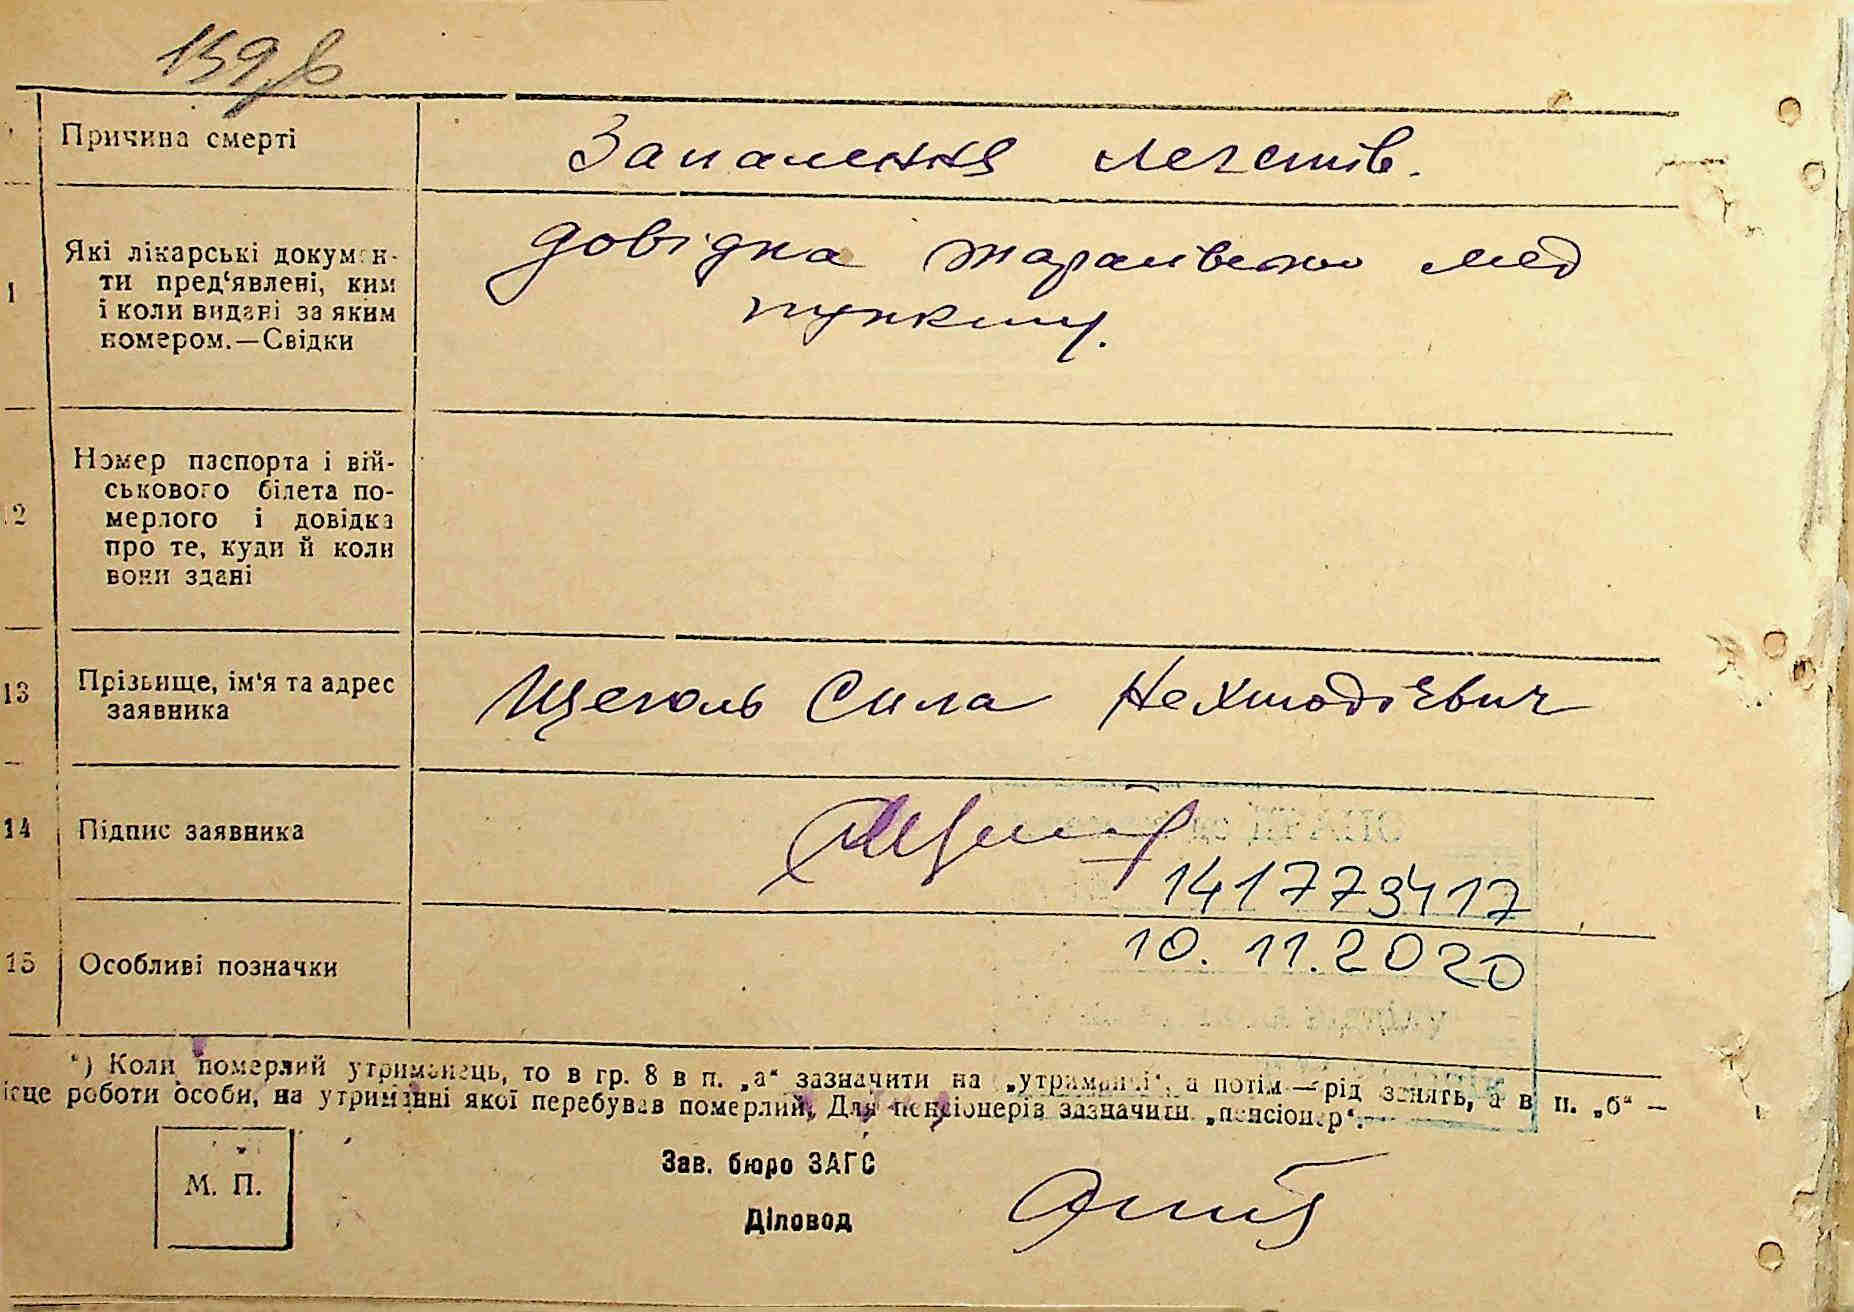 159
Причина смерті
Запалення легенів.
1
Які лікарські докумен-
ти пред‘явлені, ким
і коли видані за яким
номером.—Свідки
довідка мед
пункту.
2
Номер паспорта і вій-
ськового білета по-
мерлого і довідка
про те, куди й коли
вони здані
13
Прізвище, ім‘я та адрес
заявника
Щеголь Сила
14
Підпис заявника
141773417
15
Особливі позначки
10.11.2020
*) Коли померлий утриманець, то в гр. 8 в п. „а“ зазначити на „утриманні“, а потім — рід занять, а в п. „б“ —
ісце роботи особи, на утриманні якої перебував померлий, Для пенсіонерів зазначити „пенсіонер“.
М. П.
Зав. бюро ЗАГС
Діловод